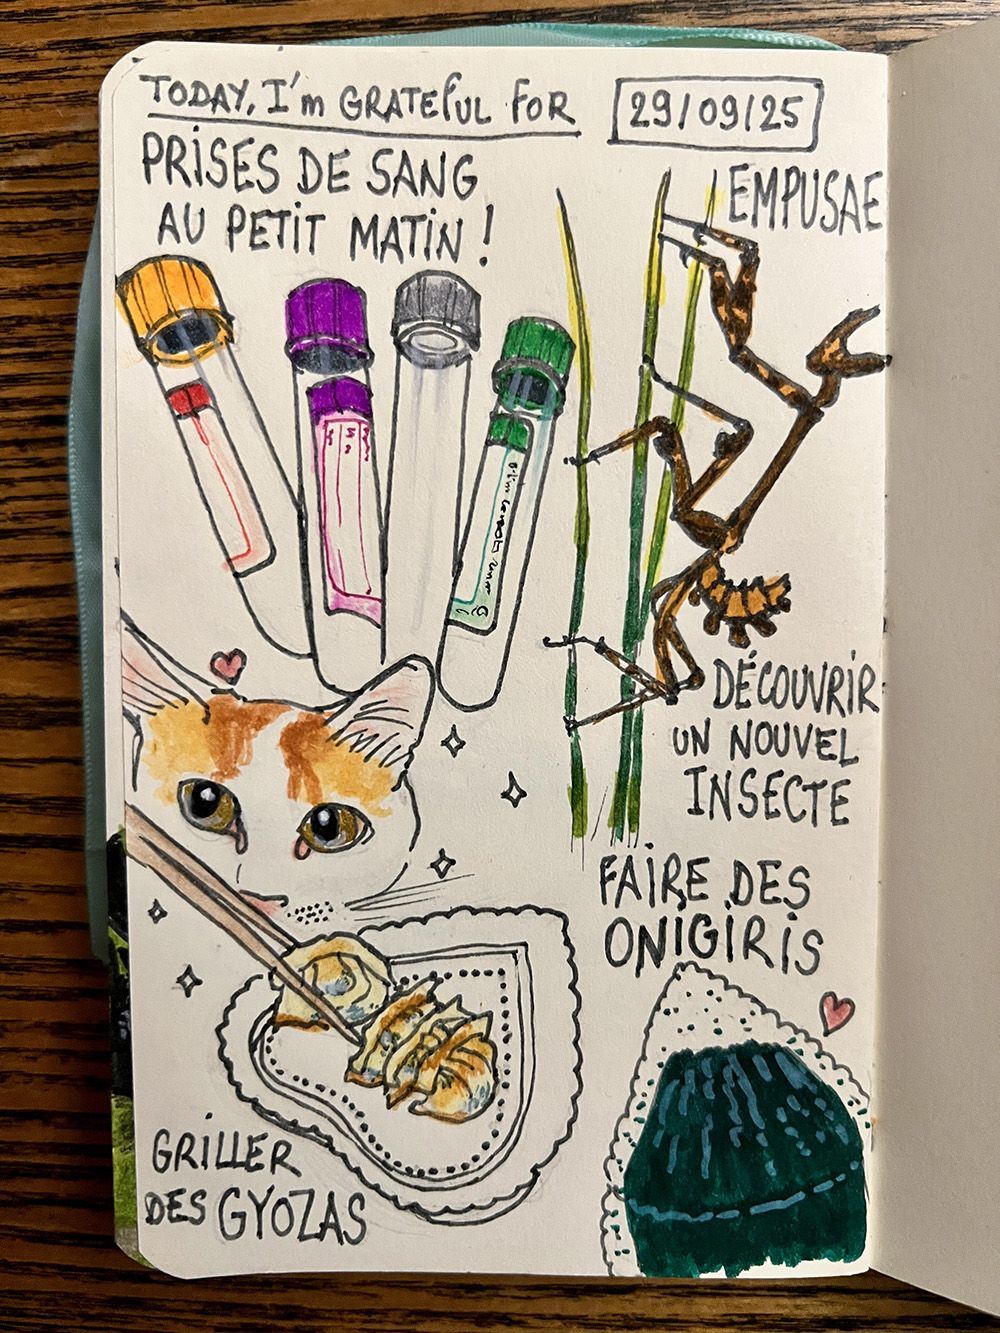 TODAY, I'm GRATEFUL FOR
29/09/25
PRISES DE SANG
AU PETIT MATIN !
EMPUSAE
DÉCOUVRIR
UN NOUVEL
INSECTE
FAIRE DES
ONIGIRIS
GRILLER
DES GYOZAS